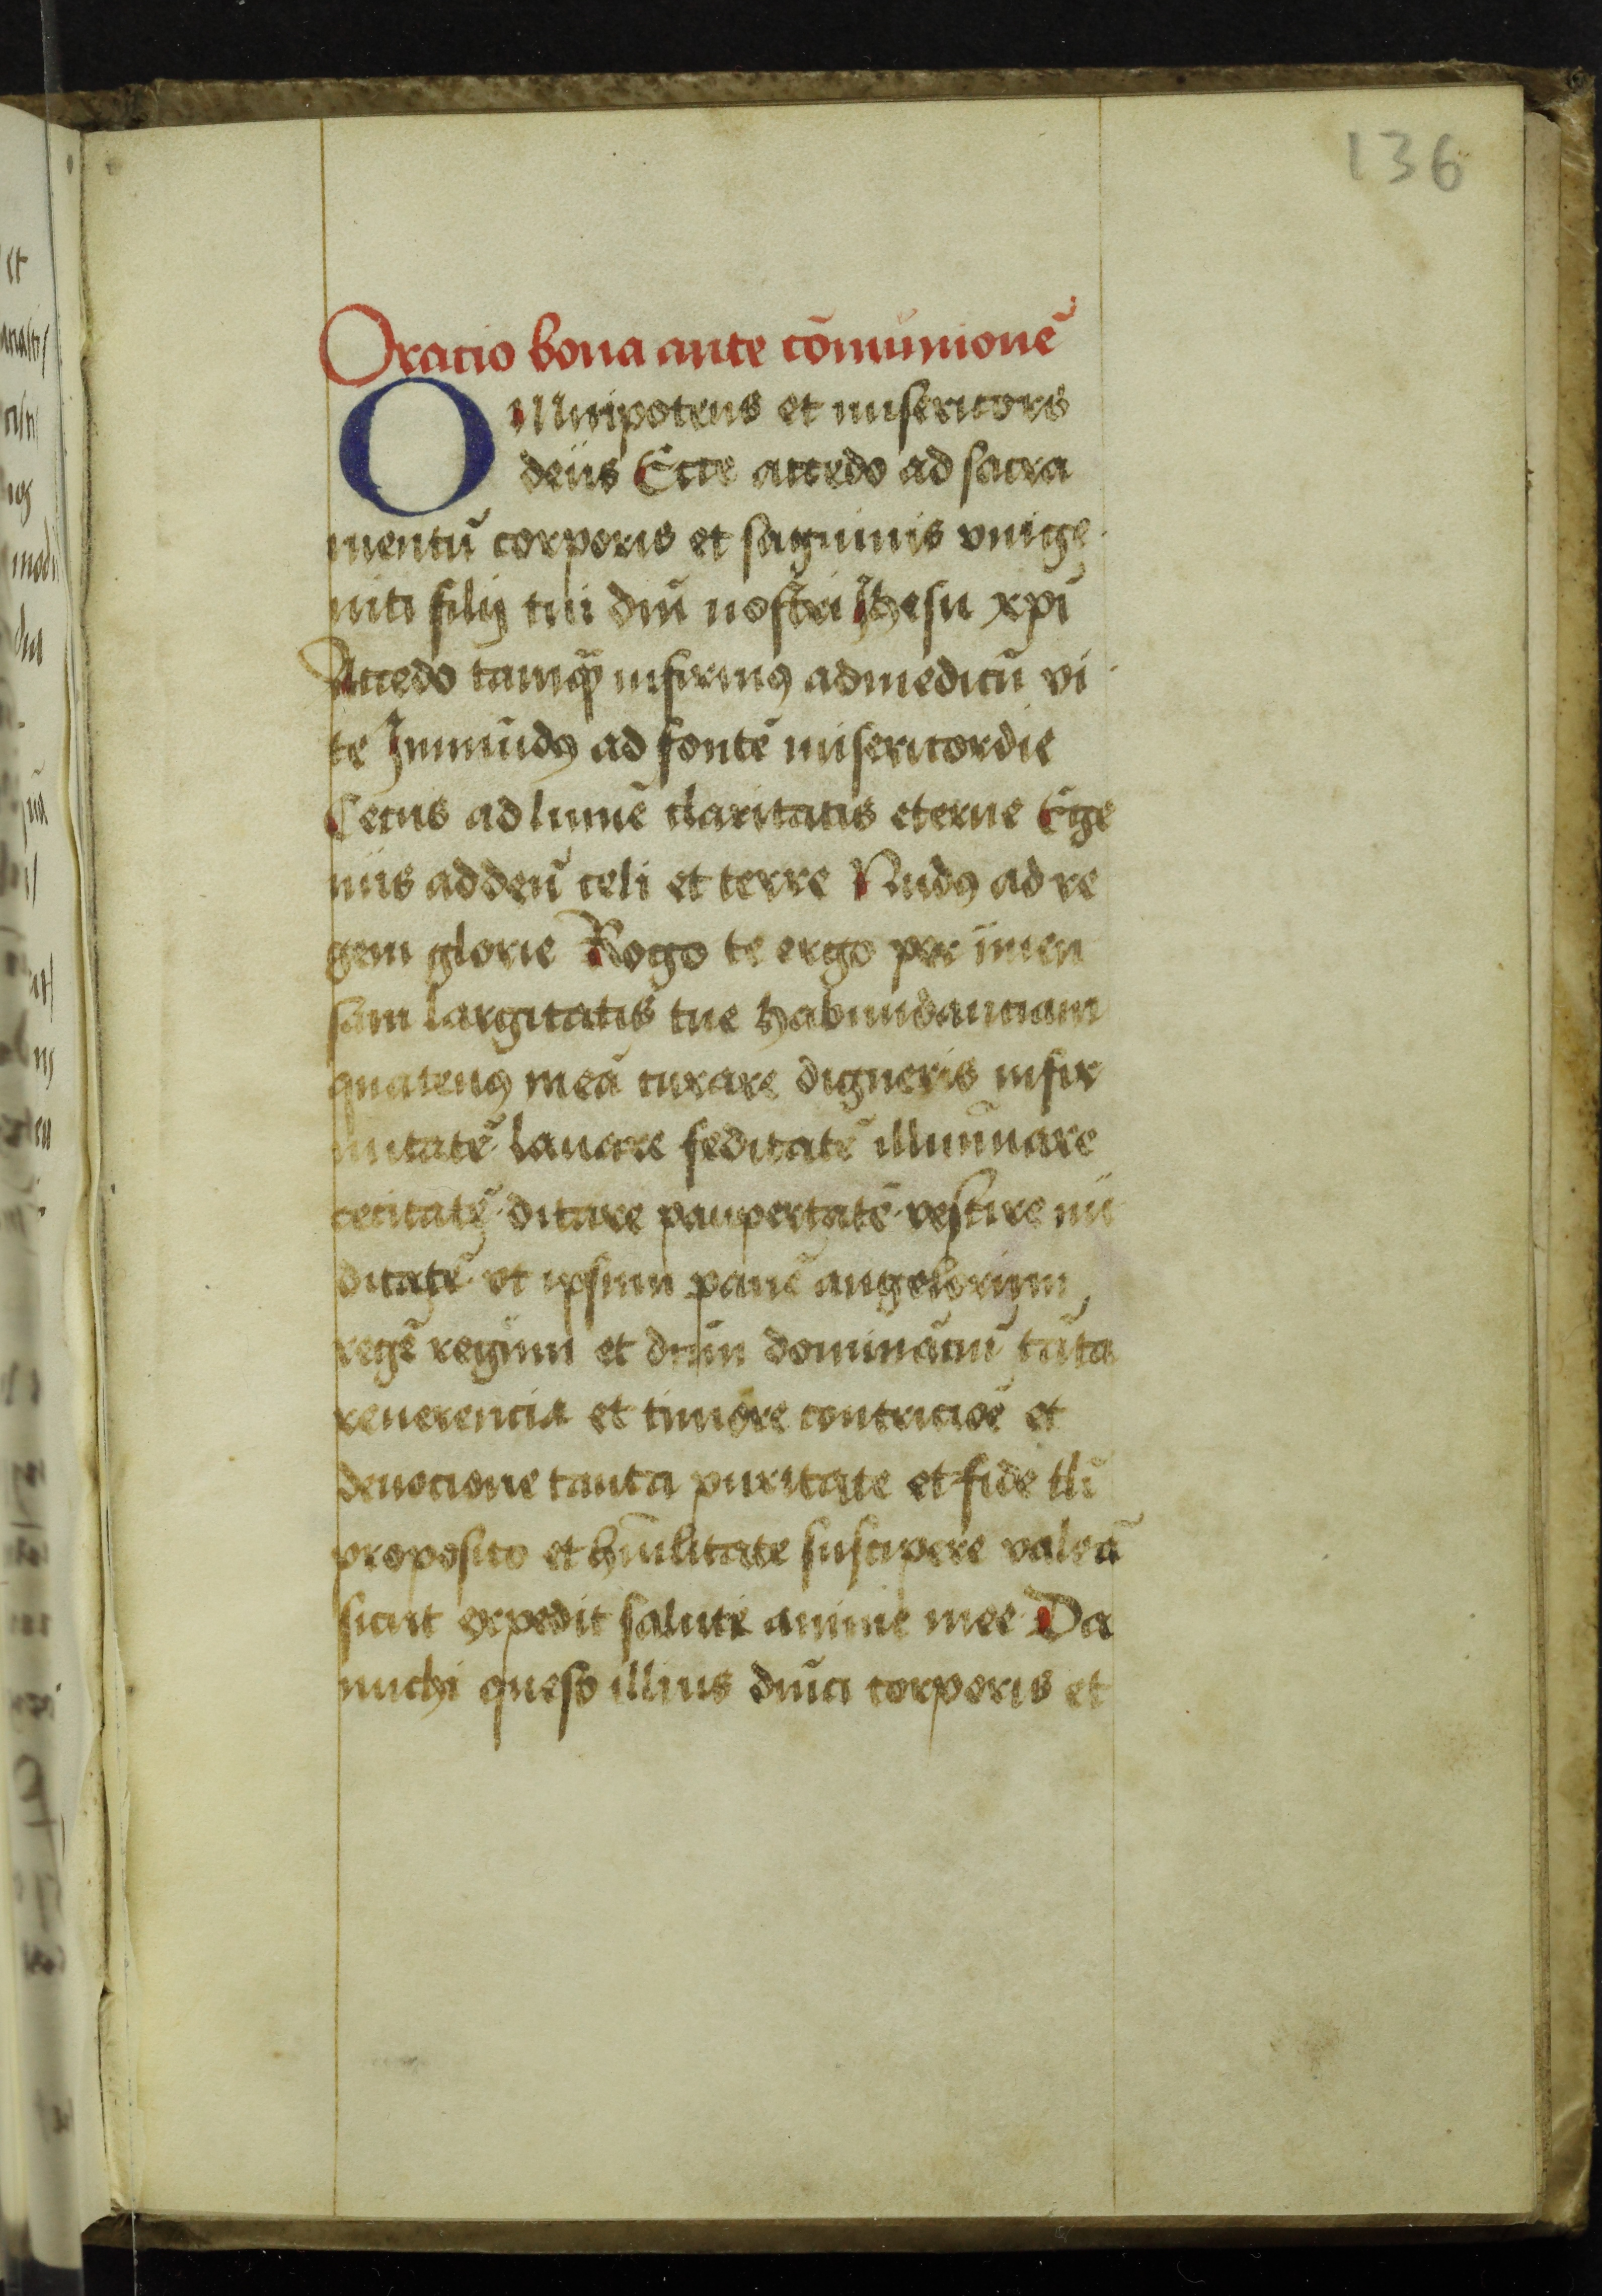 136
Oracio bona ante cōmunionē
Omnipotens et misericors
deus Ecce accedo ad sacra
mentū corporis et sāguinis vnige
niti filij tui dn̄i nostri Ihesu xp̄i
Accedo tamqȝ infirmꝰ ad medicū vi
te Immūdꝰ ad fontē misericordie
Cecus ad lumē claritatis eterne Ege
nus ad deū celi et terre Nudꝰ ad re
gem glorie Rogo te ergo per īmen
sam largitatis tue habundanciam
quatenꝰ meā curare digneris infir
mitatē lauare feditatē illuminare
cecitatē ditare paupertatē vestire nu
ditatē vt ipsum panē angelorum
regē regum et dn̄m dominaciū tāta
reuerencia et timore contricioē et
deuocione tanta puritate et fide tli
proposito et hūilitate suscipere valeā
sicut expedit saluti anime mee Da
michi queso illius dn̄ici corporis et